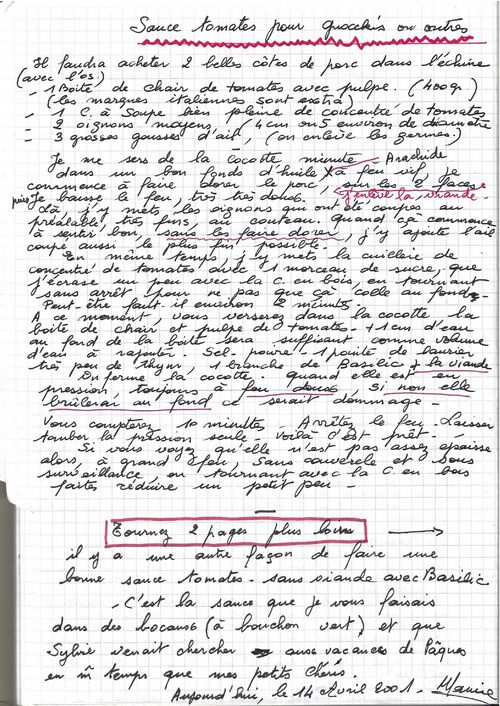 Sauce tomates pour gnocckis ou autres
Il faudra acheter 2 belles côtes de porc dans l'échine
(avec l'os.)
- 1 Boite de chair de tomates avec pulpe. (400 gr.)
(les marques italiennes sont extra)
- 1 C. à Soupe bien pleine de concentré de tomates
- 2 oignons moyens, (4 cm ou 5 environ de diamètre
- 3 grosses gousses d'ail, (on enlève les germes.)
Je me sers de la cocotte minute Arachide
dans un bon fonds d'huile X à feu vif, je
commence à faire dorer le porc, sur les 2 faces
puis Je baisse le feu, très très doux. J'enlève la viande.
Là, j'y mets les oignons qui ont été coupés au
préalable, très fins, au couteau. Quand çà commence
à sentir bon, sans les faire dorer, j'y ajoute l'ail
coupé aussi le plus fin possible.
En même temps, j'y mets la cuillère de
concentré de tomates avec 1 morceau de sucre, que
j'écrase un peu avec la C. en bois, en tournant
sans arrêt pour ne pas que çà colle au fond.
Peut-être faut-il environ 2 minutes.
A ce moment, vous verserez dans la cocotte la
boite de chair et pulpe de tomates. + 1 cm d'eau
au fond de la boite sera suffisant comme volume
d'eau à rajouter. Sel - poivre 1 pointe de laurier
très peu de Thym, 1 branche de Basilic + la viande
On ferme la cocotte, quand elle est en
pression, toujours à feu doux, si non elle
brûlerai au fond ce serait dommage -
Vous compterez 10 minutes - Arrêtez le feu - Laisser
tomber la pression seule - Voilà c'est prêt -
Si vous voyez qu'elle n'est pas assez épaisse
alors, à grand feu, sans couvercle et sous
surveillance, en tournant avec la C. en bois
faites réduire un petit peu -
Tournez 2 pages plus loin
il y a une autre façon de faire une
bonne sauce tomates - sans viande avec Basilic
- C'est la sauce que je vous faisais
dans des bocaux (à bouchon vert) et que
Sylvie venait chercher aux vacances de Pâques
en m̄ temps que mes petits chéris.
Aujourd'hui, le 14 Avril 2001 -